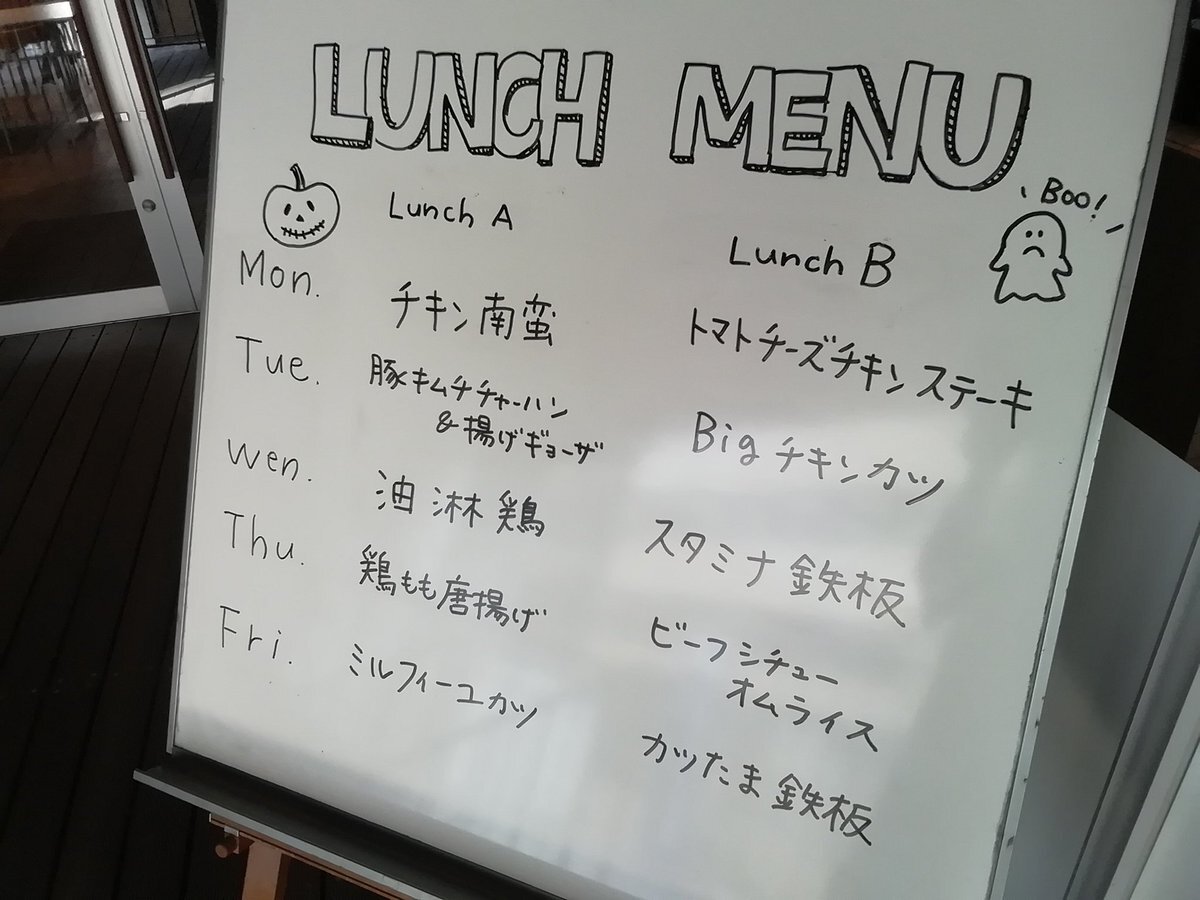 LUNCH MENU
Boo!
Lunch A
Lunch B
Mon.
チキン南蛮
トマトチーズチキンステーキ
Tue.
豚キムチチャーハン
&揚げギョーザ
Bigチキンカツ
Wen.
油淋鶏
スタミナ鉄板
Thu.
鶏もも唐揚げ
ビーフシチュー
オムライス
Fri.
ミルフィーユカツ
カツたま鉄板